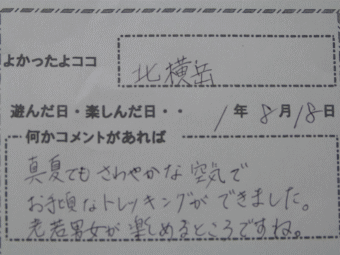 よかったよココ
北横岳
遊んだ日・楽しんだ日・・ 1年 8月18日
何かコメントがあれば
真夏でもさわやかな空気で
お手頃なトレッキングができました。
老若男女が楽しめるところですね。